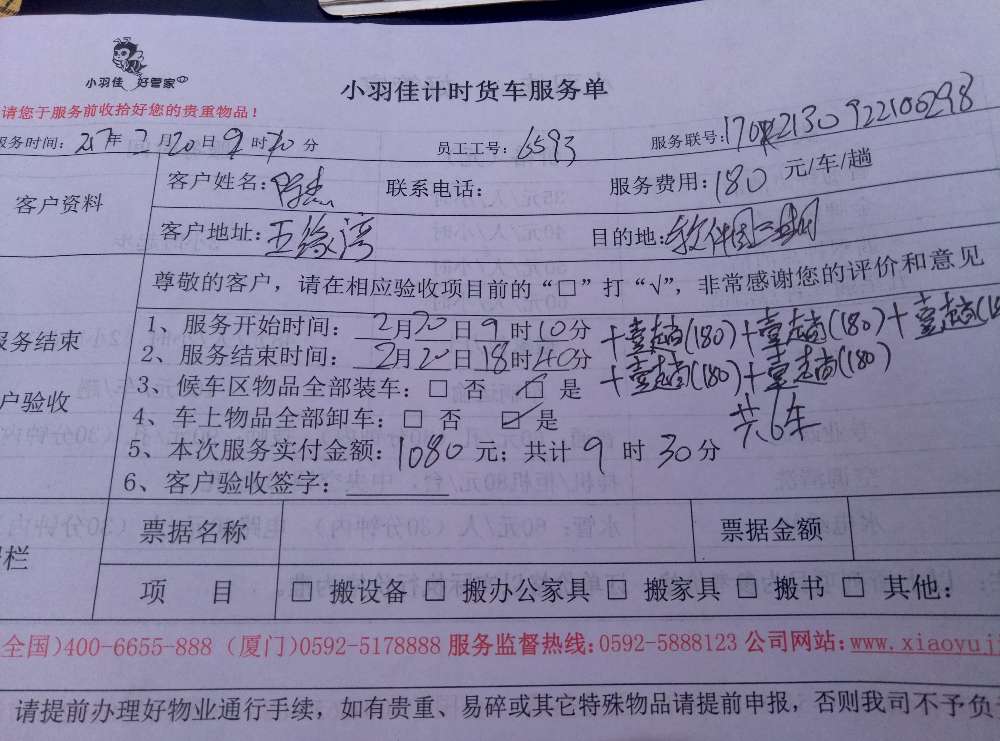 小羽佳 好管家
小羽佳计时货车服务单
请您于服务前收拾好您的贵重物品!
服务时间: 2017年2月20日9时10分 员工工号: 6593 服务联号:
客户资料
客户姓名: 联系电话: 服务费用: 180 元/车/趟
客户地址: 五缘湾 目的地: 软件园三期
尊敬的客户，请在相应验收项目前的“□”打“√”，非常感谢您的评价和意见
服务结束
户验收
1、服务开始时间: 2月20日9时10分 +壹趟(180)+壹趟(180)+壹趟(18
2、服务结束时间: 2月20日18时40分 +壹趟(180)+壹趟(180)
3、候车区物品全部装车: □ 否 ☑ 是
4、车上物品全部卸车: □ 否 ☑ 是 共6车
5、本次服务实付金额: 1080 元; 共计 9 时 30 分
6、客户验收签字:
栏
票据名称 票据金额
项 目 □ 搬设备 □ 搬办公家具 □ 搬家具 □ 搬书 □ 其他:
全国)400-6655-888 (厦门)0592-5178888 服务监督热线:0592-5888123 公司网站:www.xiaoyuj
请提前办理好物业通行手续，如有贵重、易碎或其它特殊物品请提前申报，否则我司不予负